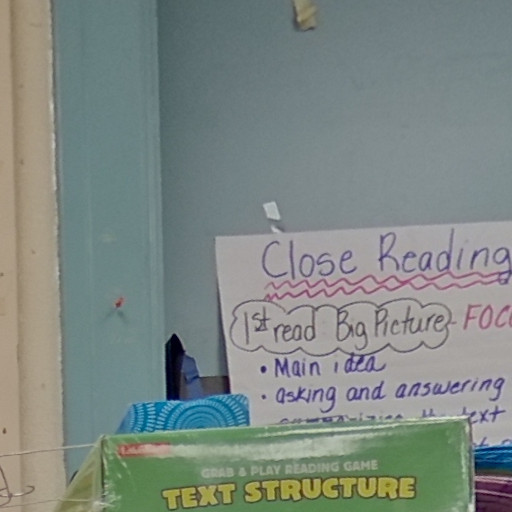 Close Reading
1st read Big Picture - FOC
• Main idea
• asking and answering
summarizing the text
GRAB & PLAY READING GAME
TEXT STRUCTURE